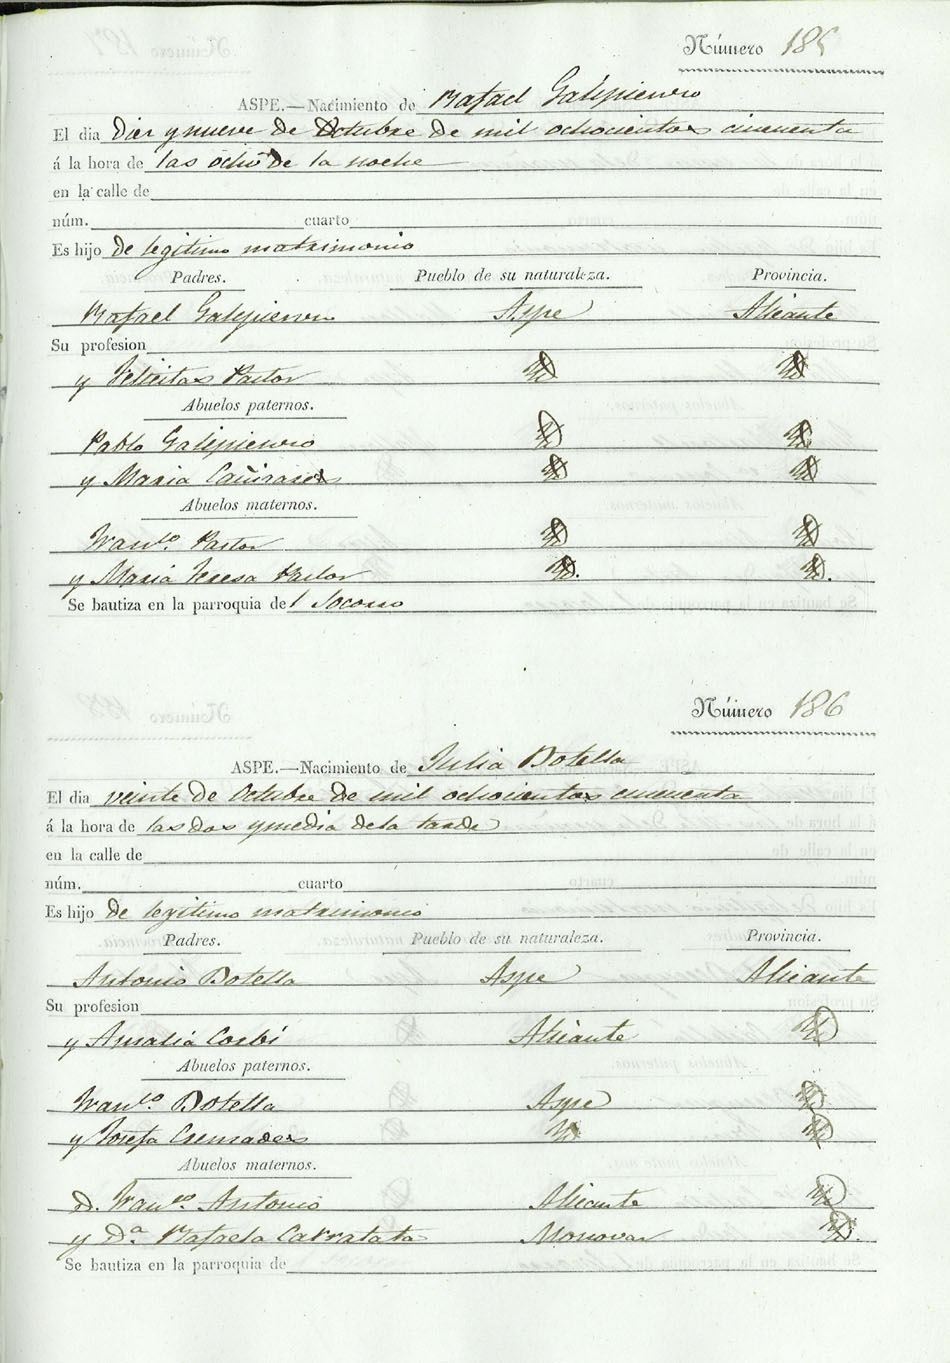 Número 185
ASPE.—Nacimiento de Rafael Galipienso
El dia Diez y nueve de Octubre de mil ochocientos cincuenta
á la hora de las ocho de la noche
en la calle de
núm. cuarto
Es hijo de legitimo matrimonio
Padres. Pueblo de su naturaleza. Provincia.
Rafael Galipienso Aspe Alicante
Su profesion
y Felicitas Pastor Yd Yd
Abuelos paternos.
Pablo Galipienso Yd Yd
y Maria Cañizares Yd Yd
Abuelos maternos.
Franco. Pastor Yd Yd
y Maria Teresa Pastor Yd. Yd.
Se bautiza en la parroquia del Socorro
Número 186
ASPE.—Nacimiento de Julia Botella
El dia veinte de Octubre de mil ochocientos cincuenta
á la hora de las dos y media de la tarde
en la calle de
núm. cuarto
Es hijo de legitimo matrimonio
Padres. Pueblo de su naturaleza. Provincia.
Antonio Botella Aspe Alicante
Su profesion
y Amalia Corbí Alicante Yd
Abuelos paternos.
Franco. Botella Aspe Yd
y Josefa Cremades Yd Yd
Abuelos maternos.
D. Franco. Antonio Alicante Yd
y Da. Rafaela Carratata Monovar Yd.
Se bautiza en la parroquia de